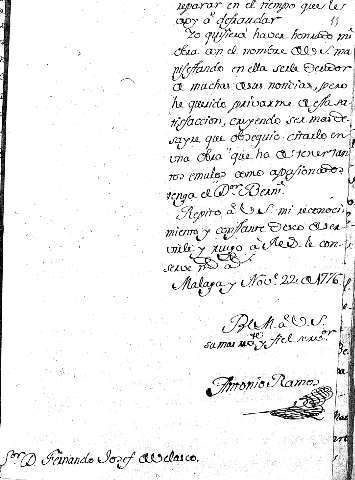 reparar en el tiempo que le
doy a defraudar
Yo quisiera haver honrrado mi
obra con el nombre de V. S. ma
nifestando en ella serle deudor
de muchas de sus noticias, pero
he querido privarme de esta sa
tisfaccion, creyendo ser mas de
sayre que obsequio citarlo en
una obra que ha de tener tan
tos emulos como apasionados
tenga el Dor.
Repito a V. S. mi reconoci
miento y constante deseo de ser
virle y ruego à le con
serve
Malaga y Nove. 22 de 1776
B. L. M. a V. S.
su mas y fiel
Antonio Ramos
Sor. D. Fernando Josef de Velasco.